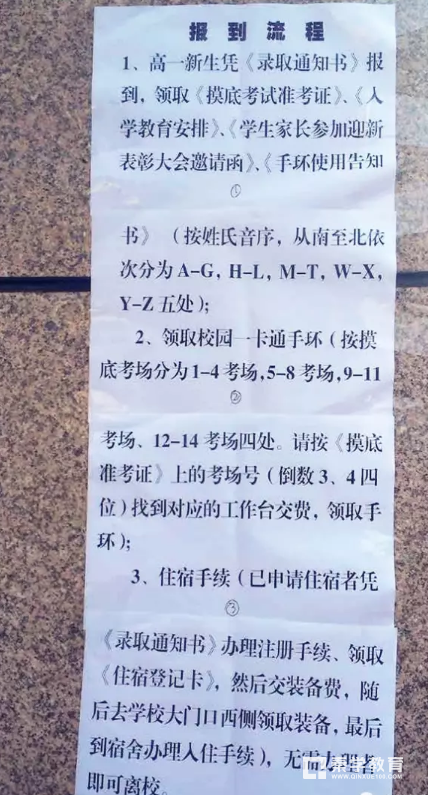 报到流程
1、高一新生凭《录取通知书》报
到，领取《摸底考试准考证》、《入
学教育安排》、《学生家长参加迎新
表彰大会邀请函》、《手环使用告知
①
书》（按姓氏音序，从南至北依
次分为A-G，H-L，M-T，W-X，
Y-Z五处）；
2、领取校园一卡通手环（按摸
底考场分为1-4考场，5-8考场，9-11
②
考场、12-14考场四处。请按《摸底
准考证》上的考场号（倒数3、4四
位）找到对应的工作台交费，领取手
环）；
3、住宿手续（已申请住宿者凭
③
《录取通知书》办理注册手续、领取
《住宿登记卡》，然后交装备费，随
后去学校大门口西侧领取装备，最后
到宿舍办理入住手续），无需办理者
即可离校。
秦学教育
WWW.QINXUE100.COM